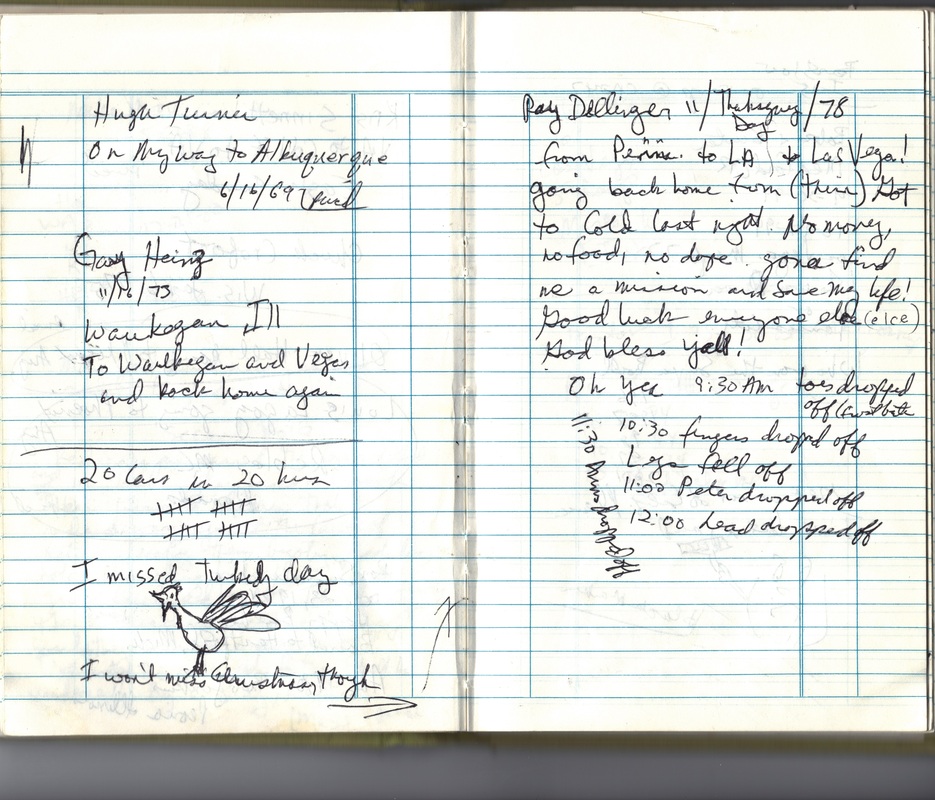 Hugh Turner
On My way to Albuquerque
6/16/69
Gary Heinz
11/16/73
Waukegan Ill
To Waukegan and Vegas
and back home again
20 Cars in 20 hrs
I missed Turkey day
I won't miss Christmas, though
Ray Dellinger 11/Thanksgiving Day/78
from Penna. to LA to Las Vega!
going back home from (there) Got
to Cold last night. No money,
no food, no dope. gonna find
me a mission and save my life!
Good luck everyone else (elce)
God bless y'all!
Oh Yea 9:30 AM toes dropped
off (frost bite
10:30 fingers droped off
Legs fell off
11:00 Peter dropped off
11:30 Arms dropped off
12:00 head dropped off